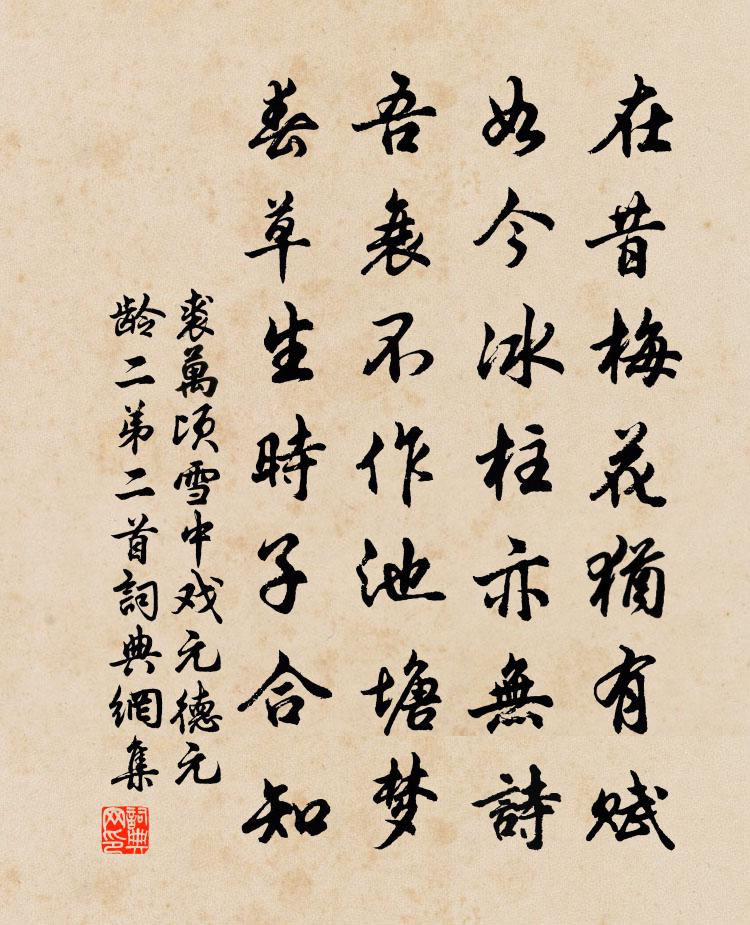 在昔梅花犹有赋
如今冰柱亦無詩
吾衰不作池塘梦
春草生時子合知
裘萬顷雪中戏元德元
龄二弟二首詞典網集
詞典网印